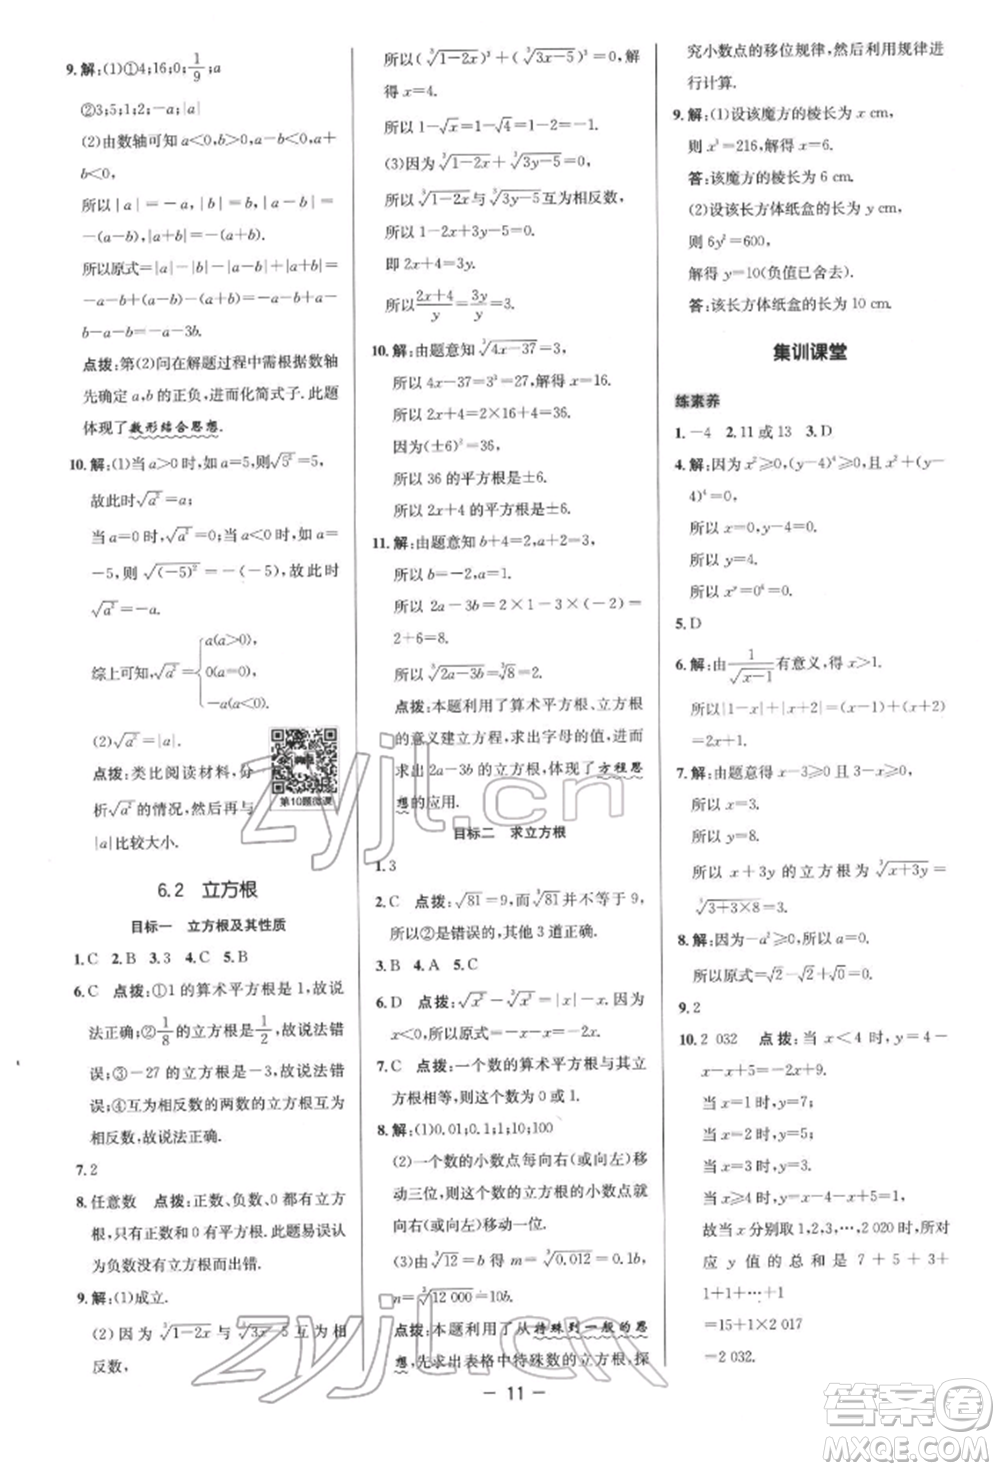 9. 解:(1)①4;16;0;1/9;a
②3;5;1;2;-a;|a|
(2)由数轴可知 a<0,b>0,a+
b<0.
所以|a|=-a,|b|=b,|a+
b|=-a-b,|a-b|=b-a.
所以原式=|a|-|b|+|a+b|-
|a-b|=-a-b+(-a-b)-(b-a)=
-a-b+(-a-b)-b+a=-a-b-a-
b-a-b-b+a=-a-3b.
点拨:第(2)问在解题过程中需根据数轴
先确定 a,b 的正负,进而化简式子.此题
体现了数形结合思想.
10. 解:(1)当 a>0 时,如 a=5,则√5²=5,
故此时√a²=a;
当 a=0 时,√a²=0;当 a<0 时,如 a=
-5,则√(-5)²=-(-5)=5,故此时
√a²=-a.
综上可知√a²={a(a>0),
0(a=0),
-a(a<0).
(2)√a²=|a|.
点拨:类比阅读材料,分
析√a²的情况,然后再与
|a|比较大小.
第10题微课
6.2 立方根
目标一 立方根及其性质
1. C 2. B 3. 3 4. C 5. B
6. C 点拨:①1 的算术平方根是 1,故说
法正确;②1/8的立方根是1/2,故说法错
误;③-27 的立方根是-3,故说法错
误;④互为相反数的数的立方根互为
相反数,故说法正确.
7. 2
8. 任意数 点拨:正数、负数、0 都有立方
根,只有正数和 0 有平方根.此题易误认
为负数没有立方根而出错.
9. 解:(1)成立.
(2)因为∛1-2x与∛3x-5互为相
反数,
所以(∛1-2x)³+(∛3x-5)³=0,解
得 x=4.
所以 1-√x=1-√4=1-2=-1.
(3)因为∛1-2x+∛3y-5=0,
所以∛1-2x与∛3y-5互为相反数.
所以 1-2x+3y-5=0.
即 2x+4=3y.
所以(2x+4)/y=3y/y=3.
10. 解:由题意知∛4x-37=3,
所以 4x-37=3³=27,所以 x=16.
所以 2x+4=2×16+4=36.
因为(±6)²=36,
所以 36 的平方根是±6.
所以 2x+4 的平方根是±6.
11. 解:由题意知 b+4=2,a=1.
所以 b=-2,a=1.
所以 2a-3b=2×1-3×(-2)=
2+6=8.
所以∛2a-3b=∛8=2.
点拨:本题利用了算术平方根、立方根
的意义建立方程,求出字母的值,进而
求出 2a-3b 的立方根,体现了方程思
想的应用.
目标二 求立方根
1. 3
2. C 点拨:√81=9,∛81≠9,
所以②是错误的,其他 3 道正确.
3. B 4. A 5. C
6. D 点拨:√x²-∛x³=|x|-x.因为
x<0,所以原式=-x-x=-2x.
7. C 点拨:一个数的算术平方根与其立
方根相等,这个数是 0 或 1.
8. 解:(1)0.01;0.1;1;10;100
(2)一个数的小数点每向右(或向左)移
动三位,它的立方根的小数点就
向右(或向左)移动一位.
(3)由∛12=b 得 m=∛0.012=0.1b,
n=∛12 000=10b.
点拨:本题利用了从特殊到一般的思
想,先求出表格中特殊数的立方根,探
究小数点的移位规律,然后利用规律进
行计算.
9. 解:(1)设该魔方的棱长为 x cm,
则 x³=216,解得 x=6.
答:该魔方的棱长为 6 cm.
(2)设该长方体纸盒的长为 y cm,
则 6y²=600,
解得 y=10(负值已舍去).
答:该长方体纸盒的长为 10 cm.
集训课堂
练素养
1. -4 2. 11 或 13 3. D
4. 解:因为 x²≥0,(y-4)⁴≥0,且 x²+(y-
4)⁴=0,
所以 x=0,y-4=0.
所以 x=0,y=4.
所以 xʸ=0⁴=0.
5. D
6. 解:由1/√x-1有意义,得 x>1.
所以|1-x|+|x+2|=(x-1)+(x+2)
=2x+1.
7. 解:由题意得 x-3≥0,3-x≥0,
所以 x=3,所以 y=8.
所以 x+3y 的立方根为∛x+3y=
∛3+3×8=3.
8. 解:因为-a²≥0,所以 a=0.
所以原式=√4-√9+√0=-1.
9. 2
10. 2 032 点拨:当 x<4 时,y=4-
x-x+5=-2x+9.
当 x=1 时,y=7;
当 x=2 时,y=5;
当 x=3 时,y=3;
当 x≥4 时,y=x-4-x+5=1.
故当 x 分别取 1,2,3,…,2 020 时,所对
应 y 值的总和是 7+5+3+
1+1+…+1
=15+1×2 017
=2 032.
— 11 —
zyjl.cn
zyjl.cn
答案圈
MXQE.COM